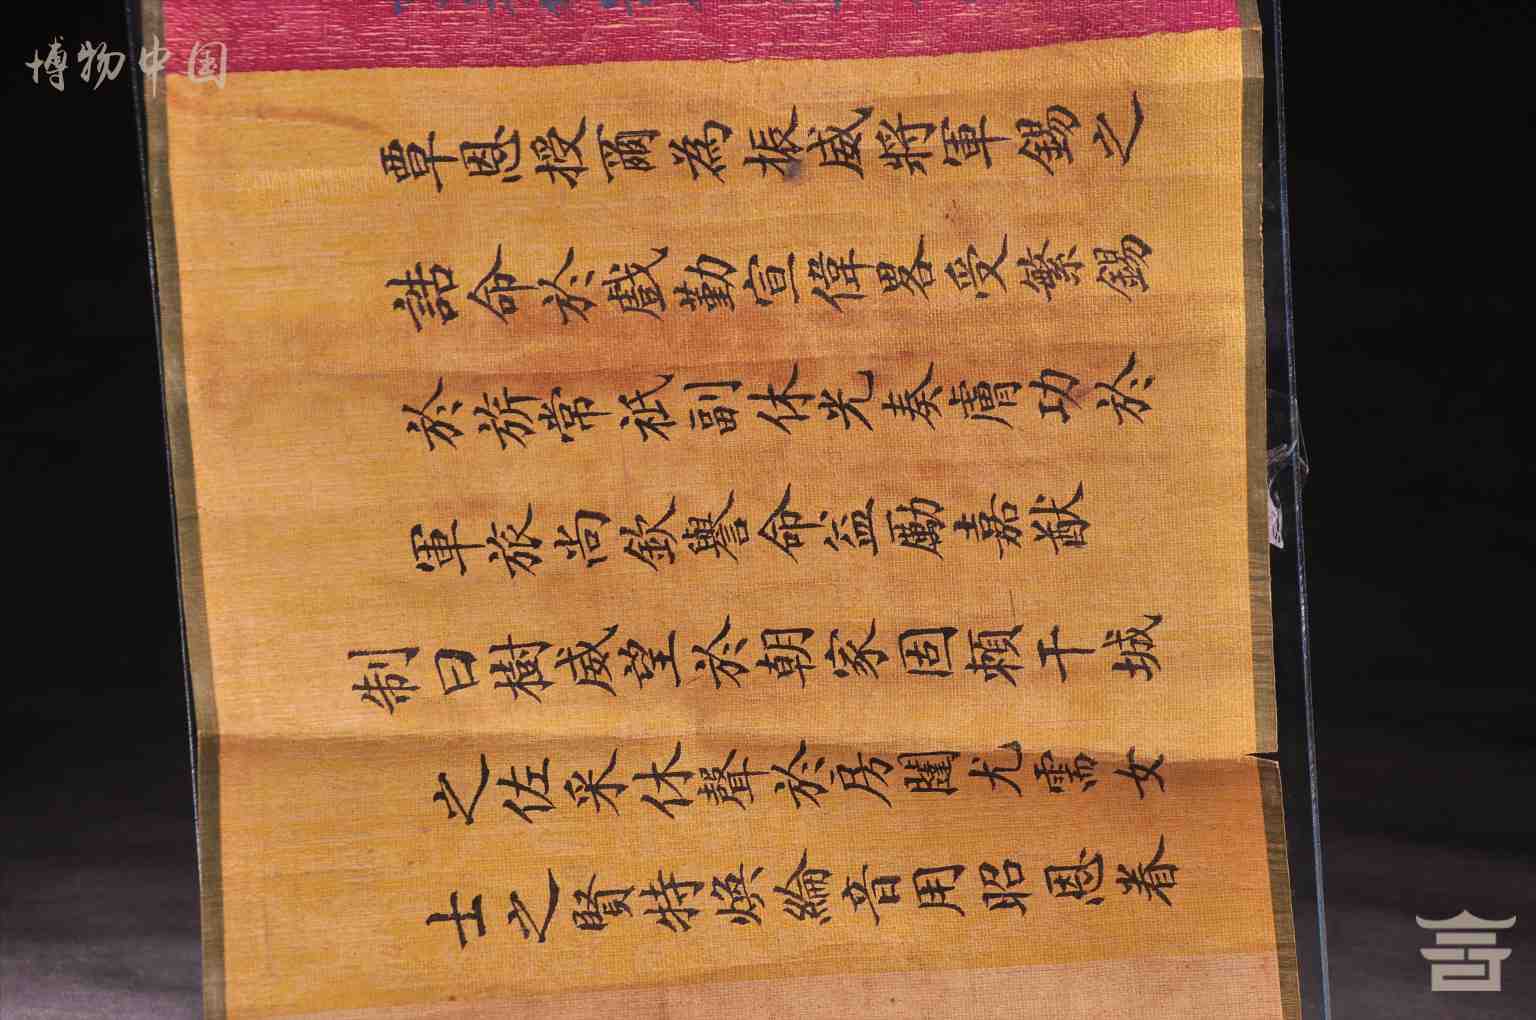 博物中国
覃恩授爾為振威將軍錫之
誥命於戲勤宣偉畧受繁錫
於旂常祗副休光奏膚功於
軍旅尚欽譽命益勵嘉猷
制曰樹威望於朝家固賴干城
之佐采休聲於房闥尤需女
士之賢特煥綸音用昭恩眷